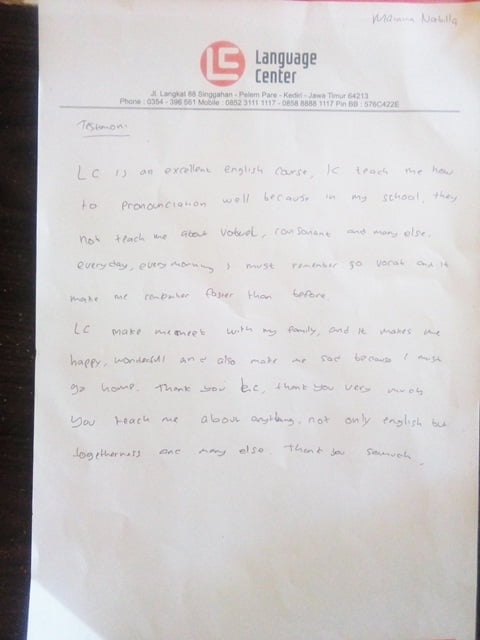 Maulina Nabilla
LC Language
Center
Jl. Langkat 88 Singgahan - Pelem Pare - Kediri - Jawa Timur 64213
Phone : 0354 - 396 561 Mobile : 0852 3111 1117 - 0858 8888 1117 Pin BB : 576C422E
Testimoni
LC is an excellent english course, lc teach me how
to pronounciation well because in my school, they
not teach me about vowel, consonant and many else.
everyday, every morning I must remember 50 vocab and it
make me remember faster than before.
LC make me meet with my family, and it makes me
happy, wonderfull and also make me sad because I must
go home. Thank you LC, thank you very much
you teach me about anything, not only english but
togetherness and many else. thank you somuch.